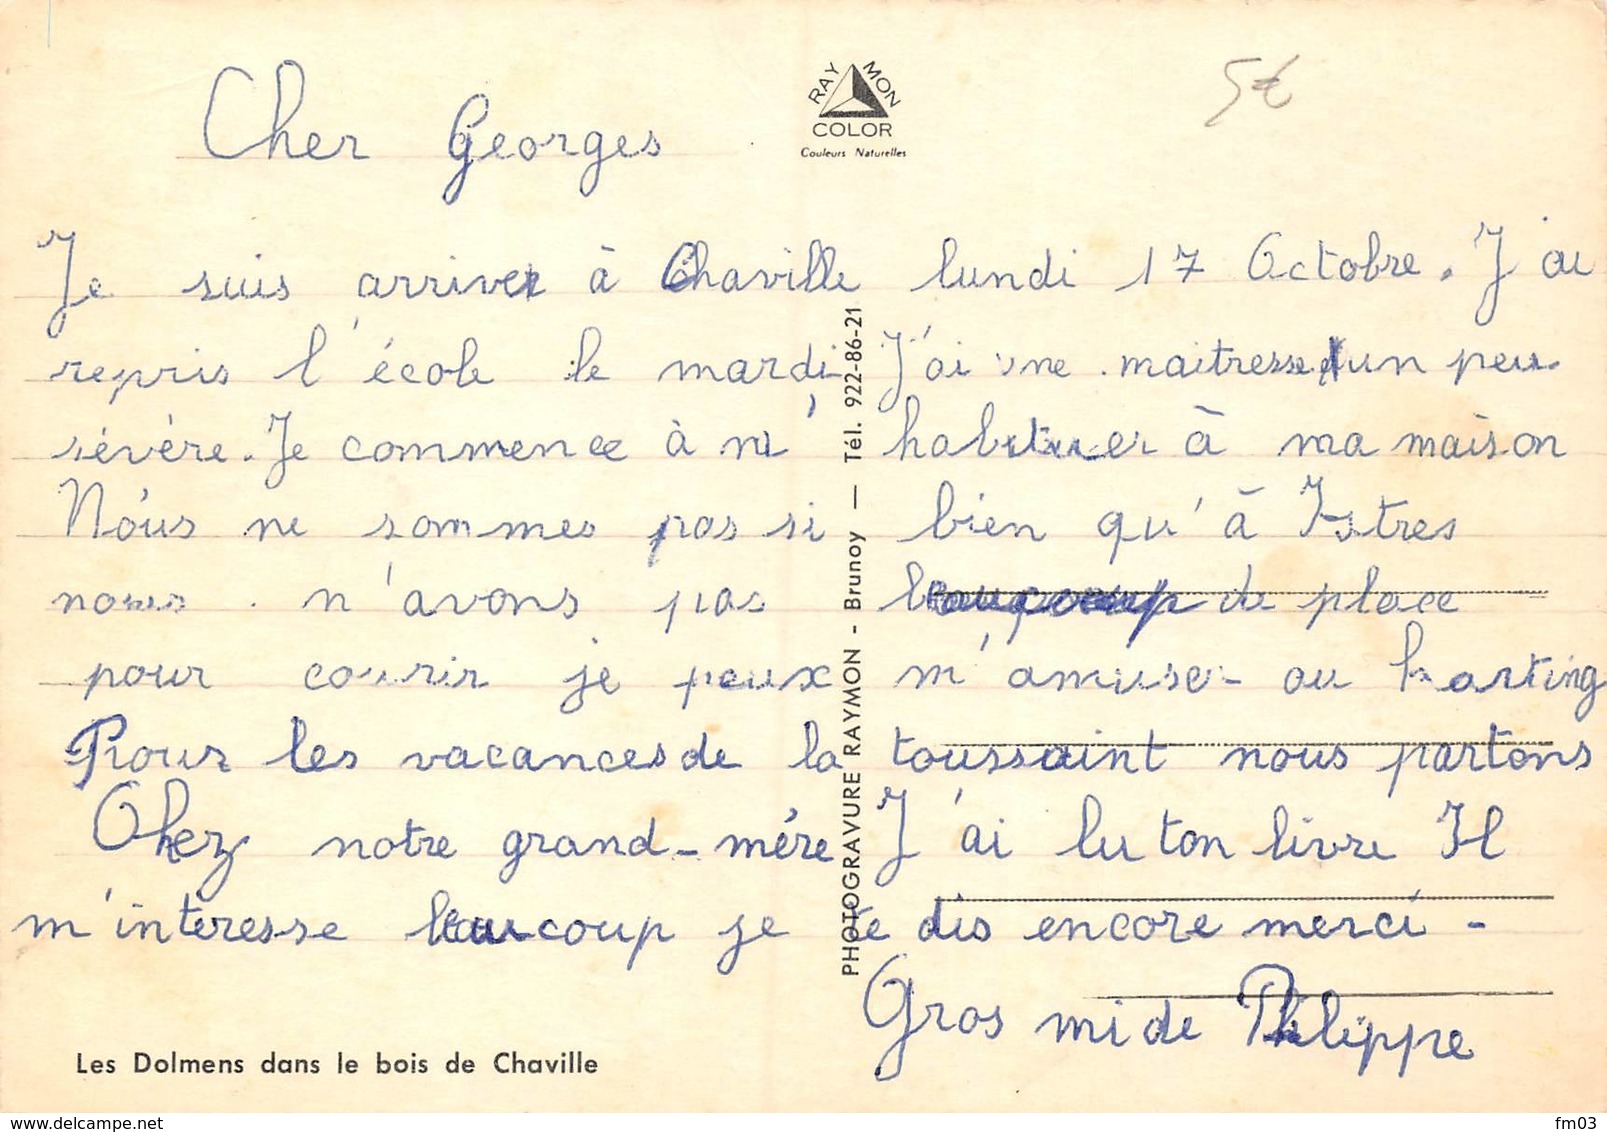 5€
RAYMON
COLOR
Couleurs Naturelles
Cher Georges
Je suis arriver à Chaville lundi 17 Octobre. J'ai
repris l'école le mardi J'ai une maitresse un peu
sévère. Je commence à m'habituer à ma maison
Nous ne sommes pas si bien qu'à Istres
nous n'avons pas beaucoup de place
pour courir je peux m'amuser au karting
Pour les vacances de la toussaint nous partons
Chez notre grand-mére J'ai lu ton livre Il
m'interesse beaucoup je te dis encore merci -
Gros mi de Philippe
PHOTOGRAVURE RAYMON - Brunoy — Tél. 922-86-21
Les Dolmens dans le bois de Chaville
www.delcampe.net
fm03